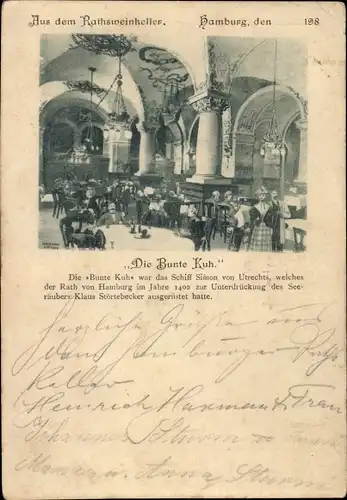 Aus dem Rathsweinkeller. Hamburg, den 198
„Die Bunte Kuh."
Die »Bunte Kuh« war das Schiff Simon von Utrechts, welches
der Rath von Hamburg im Jahre 1402 zur Unterdrückung des See-
räubers Klaus Störtebecker ausgerüstet hatte.
herzliche Grüße aus
dem Hamburger Raths
Keller
Heinrich Harman & Frau
Johannes Sturm u Frau
u. Anna Sturm